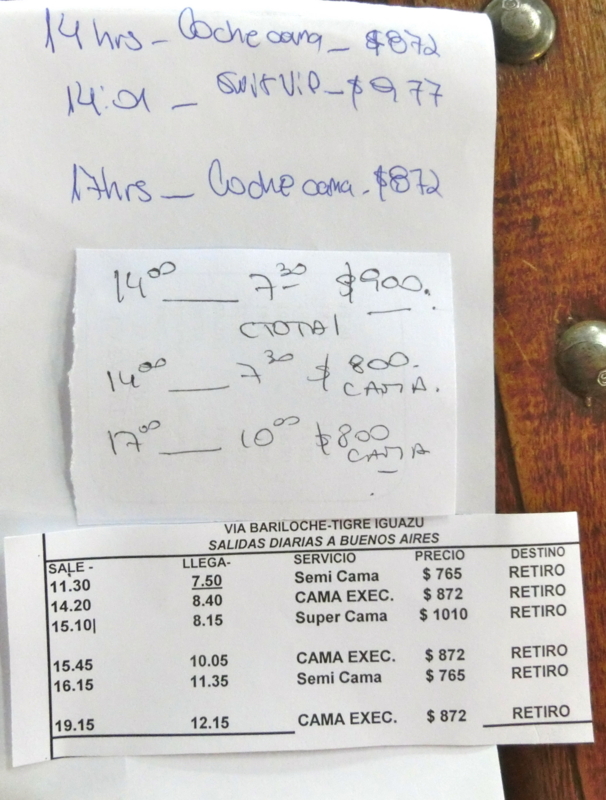 14hrs - Coche cama - $872
14:01 - Suit Vip - $977
17hrs - Coche cama - $872
14⁰⁰ ___ 7³⁰ $900.
CTOTAL
14⁰⁰ ___ 7³⁰ $800.
CAMA.
17⁰⁰ ___ 10⁰⁰ $800
CAMA
VIA BARILOCHE-TIGRE IGUAZU
SALIDAS DIARIAS A BUENOS AIRES
SALE - LLEGA- SERVICIO PRECIO DESTINO
11.30 7.50 Semi Cama $ 765 RETIRO
14.20 8.40 CAMA EXEC. $ 872 RETIRO
15.10| 8.15 Super Cama $ 1010 RETIRO
15.45 10.05 CAMA EXEC. $ 872 RETIRO
16.15 11.35 Semi Cama $ 765 RETIRO
19.15 12.15 CAMA EXEC. $ 872 RETIRO